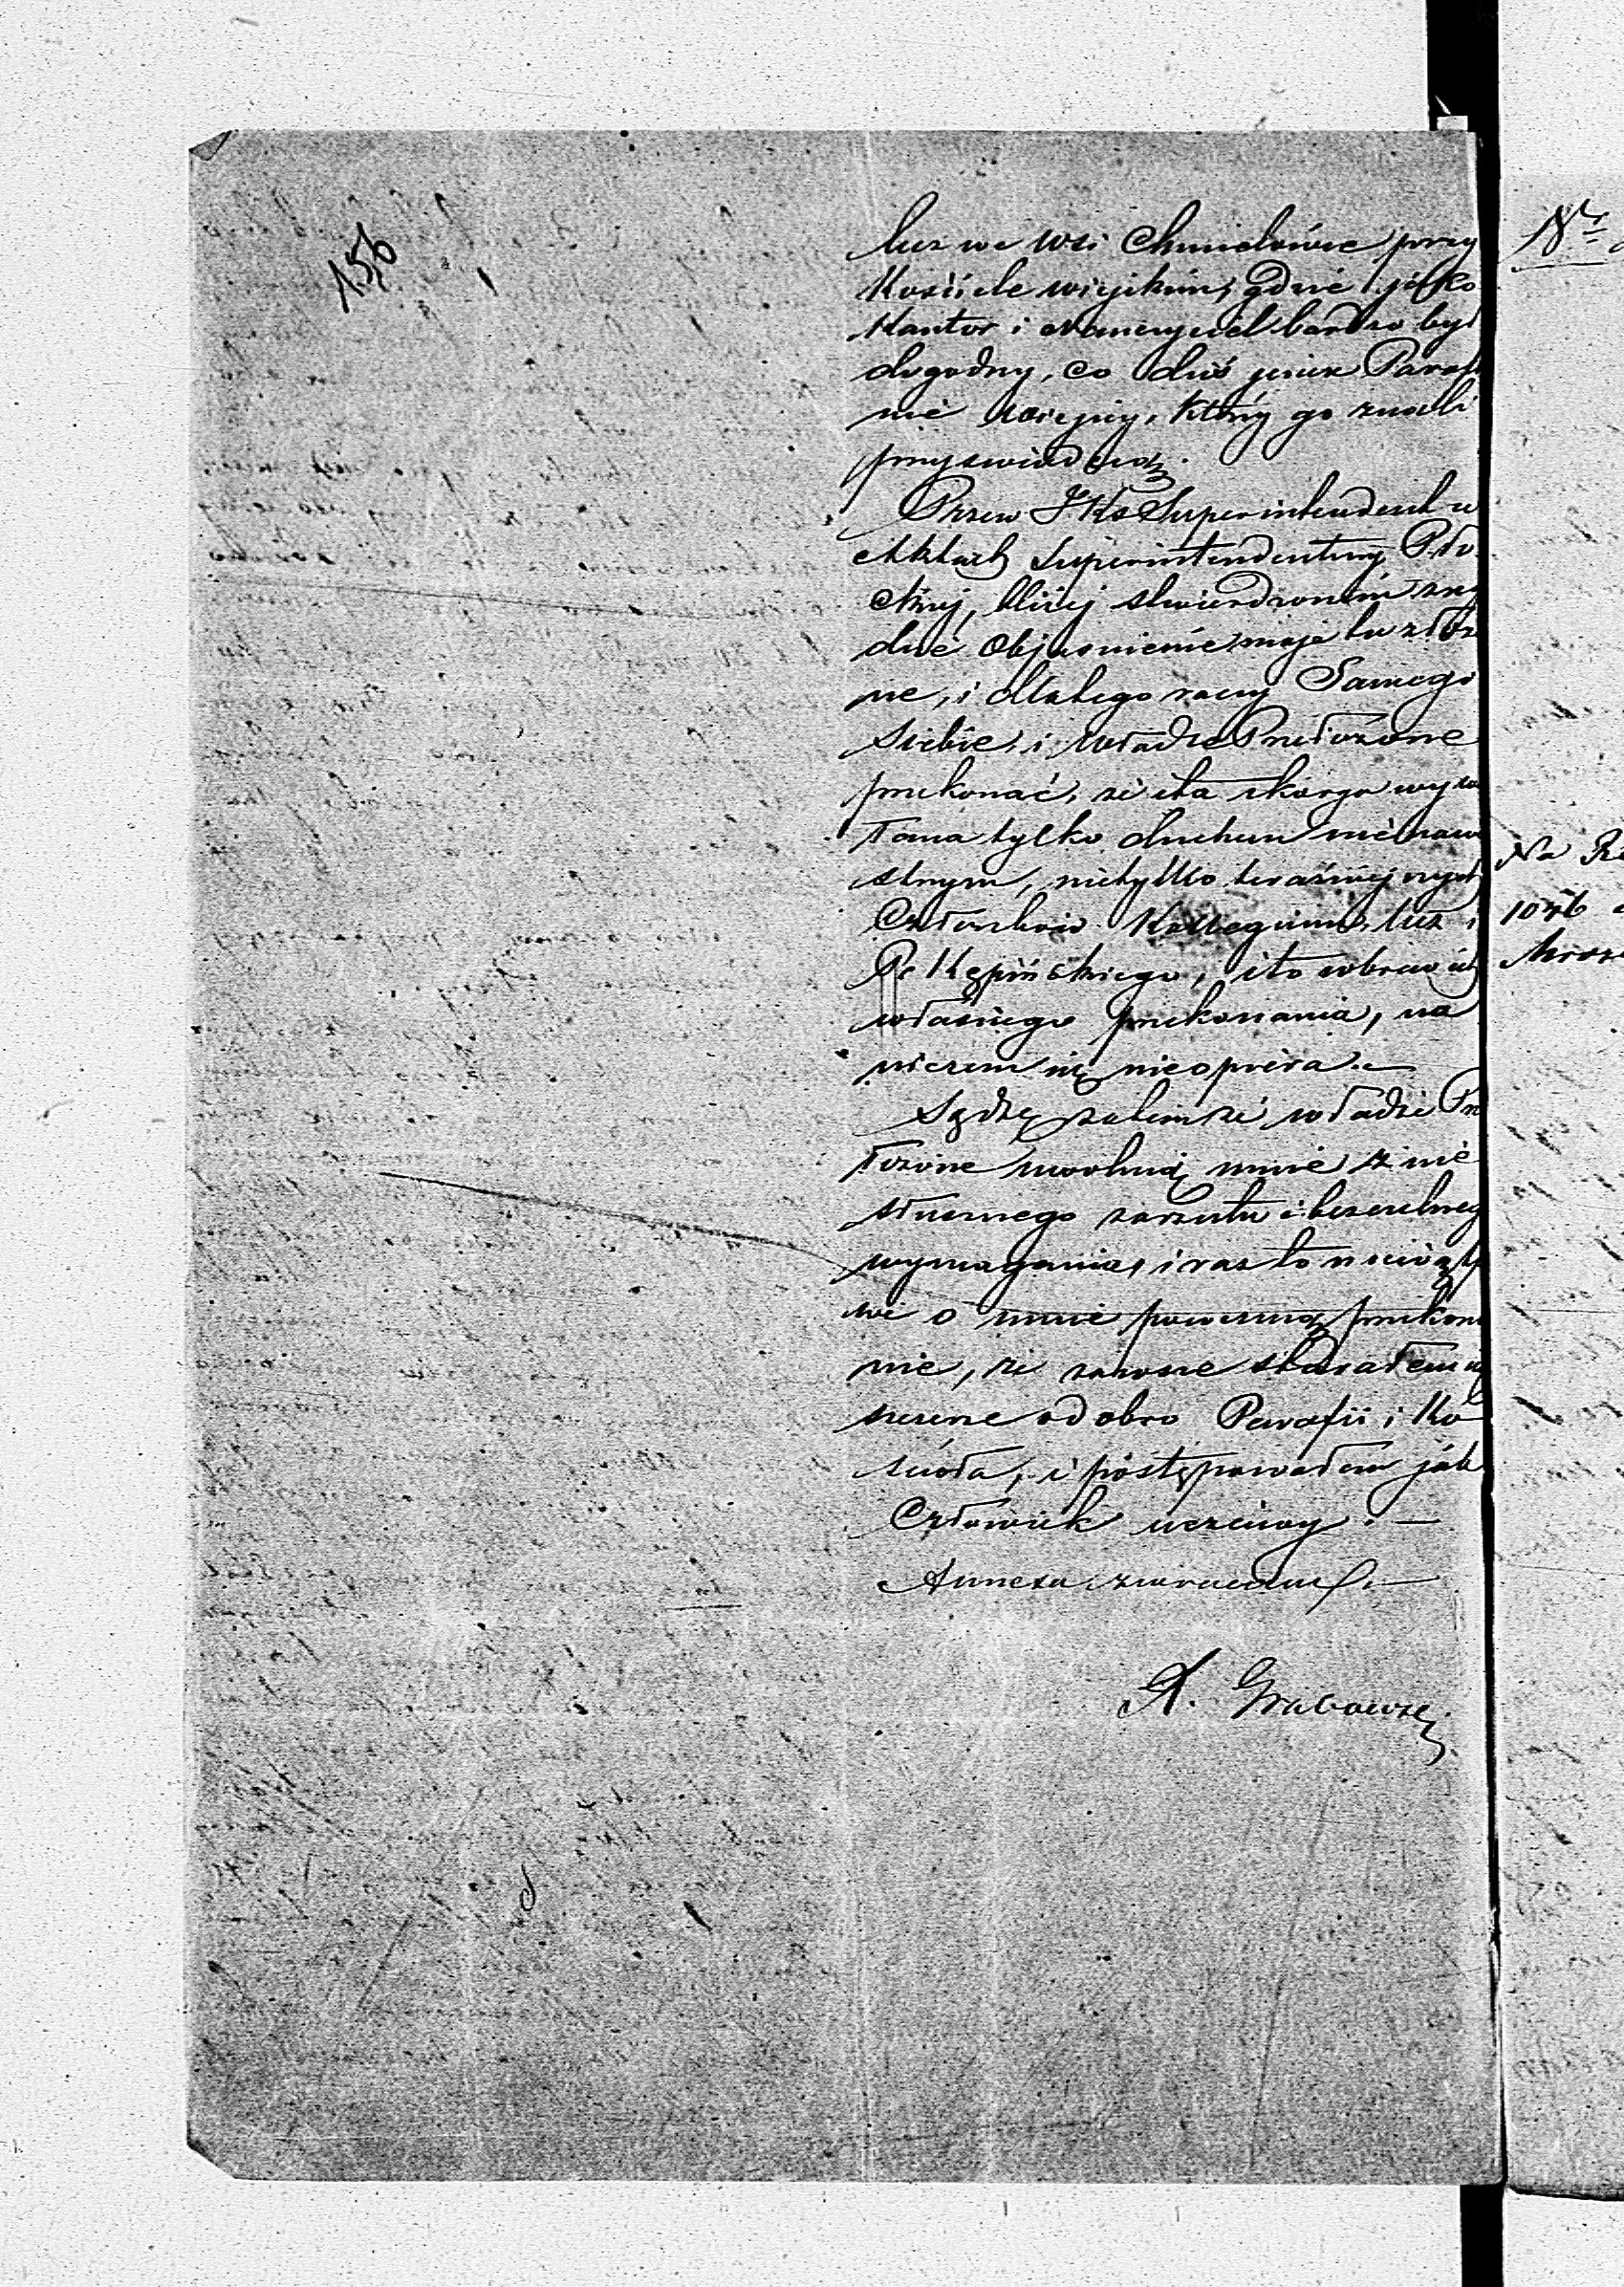 156
lecz we wsi Chmielówce przy
Kościele wiejskim, gdzie jako
Kantor i Nauczyciel bardzo był
dogodny, co dziś jeszcze Paraf
nie wiejscy, którzy go znali
przyświadczą.
Przew JKs Superintendent w
Aktach Superintendentury Pło
ckiej, bliżej stwierdzonem
dzie objaśnienie moje tu złoż
ne, i dlatego raczy Samego
Siebie i Władze Przełożone
przekonać, że ta skarga wywo
łana tylko duchem nienawi
stnym, nietylko teraźniejszych
Członków Kollegium, lecz i
P. Kępińskiego, i to wbrew ich
własnego przekonania, na
niczem się nieopiera.—
Sądzę zatem że władze Prz
łożone uwolnią mnie z nie
słusznego zarzutu i bezcelneg
wymagania, i raz to
o mnie poweźmą przekona
nie, że zawsze starałem się
szczerze o dobro Parafii i Ko
ścioła, i postępowałem jak
Człowiek uczciwy.—
Annexa zwracam.—
A. Grabowski
Na
1046